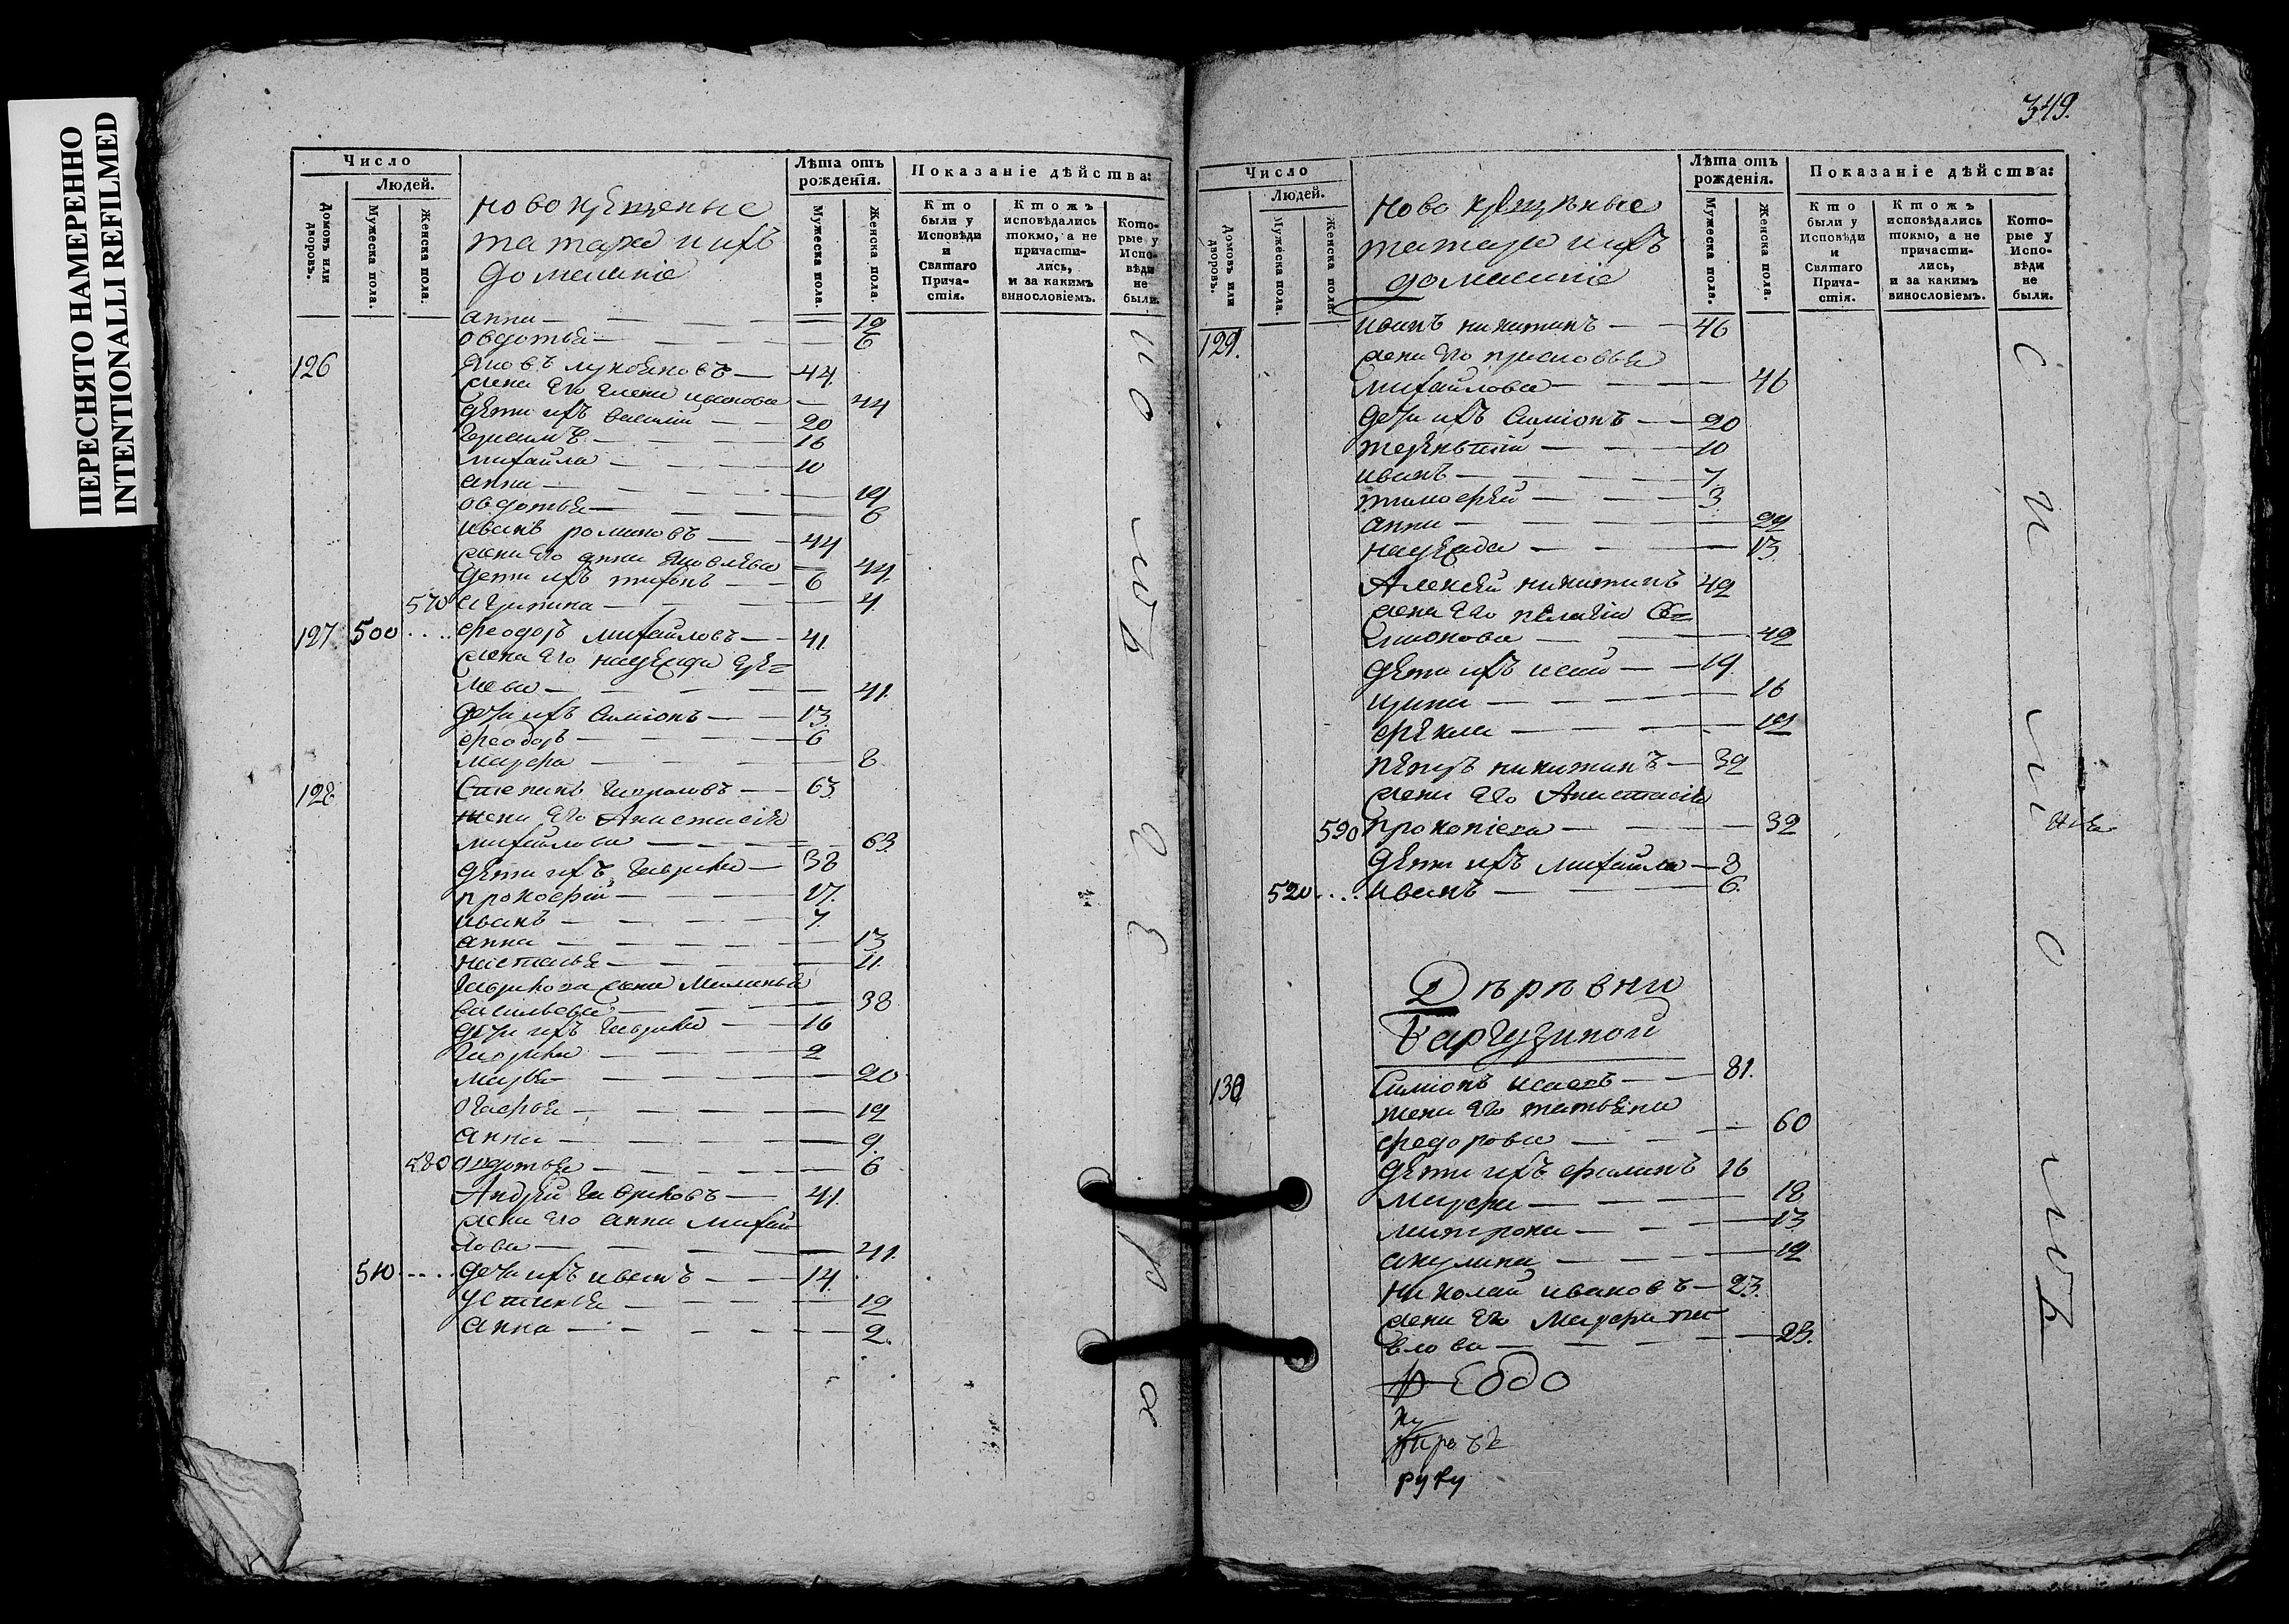 ПЕРЕСНЯТО НАМЕРЕННО
INTENTIONALLI REFILMED
Число
Людей.
Домовъ или дворовъ.
Мужеска пола.
Женска пола.
новокрещеные
татара и ихъ
домашніе
Лѣта отъ рожденія.
Мужеска пола.
Женска пола.
Показаніе дѣйства:
Кто были у Исповѣди и Святаго Причастія.
Ктожъ исповѣдались токмо, а не причастились, и за какимъ винословіемъ.
Которые у Исповѣди не были.
анна 19
овдотья 6
126 Яковъ лукояновъ 44
жена Его Елена иванова 44
дети ихъ василий 20
16
михайла 10
анна 19
овдотья 6
иванъ романовъ 44
жена Его анна Яковлева 44
дети ихъ тихонъ 6
570 4
127 500 феодоръ михайловъ 41
жена Его надежда
41
дети ихъ Симионъ 13
феодоръ 6
мавра 8
128 Степанъ 63
жена Его Анастасия
михайлова 63
дети ихъ Гаврила 38
прокофий 17
иванъ 7
анна 13
настасья 11
Гаврилова жена Маланья
Васильева 38
дети ихъ Гаврила 16
Гаврила 2
марья 20
Агафья 12
анна 9
580 овдотья 6
Андрей Гавриловъ 41
жена Его анна михай
лова 41
510 дети ихъ иванъ 14
устинья 12
анна 2
349.
Число
Людей.
Домовъ или дворовъ.
Мужеска пола.
Женска пола.
ново крещеные
татара и ихъ
домашніе
Лѣта отъ рожденія.
Мужеска пола.
Женска пола.
Показаніе дѣйства:
Кто были у Исповѣди и Святаго Причастія.
Ктожъ исповѣдались токмо, а не причастились, и за какимъ винословіемъ.
Которые у Исповѣди не были.
129. иванъ никитинъ 46
жена Его прасковья
михайлова 46
дети ихъ Симионъ 20
терентий 10
иванъ 7
тимофей 3
анна
надежда 13
Алексей никитинъ 42
жена Его пелагия Си=
мионова 42
дети ихъ исай 19
ирина 16
фекла 12
петръ никитинъ 32
жена Его Анастасия
590 прокопиева 32
дети ихъ михайла 8
520 иванъ 6
Деревни
Баргузиной
130 Симионъ исаевъ 81.
жена Его татьяна
федорова 60
дети ихъ филипъ 16
мавра 18
матрона 13
акулина 12
николай ивановъ 23
жена Его Мавра па
влова 23.
руку